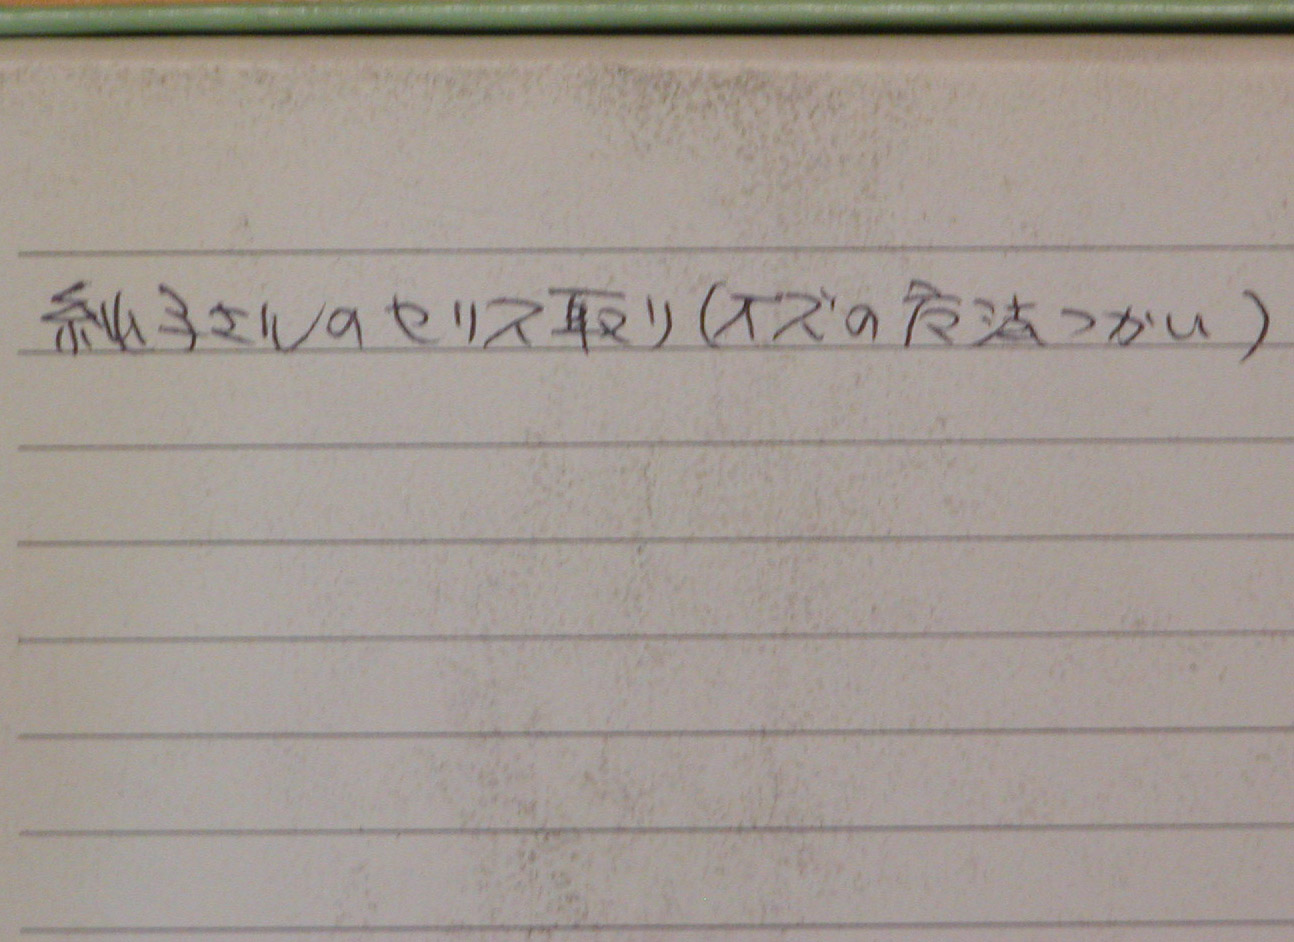 糾子さんのセリス取り(オズの魔法つかい)